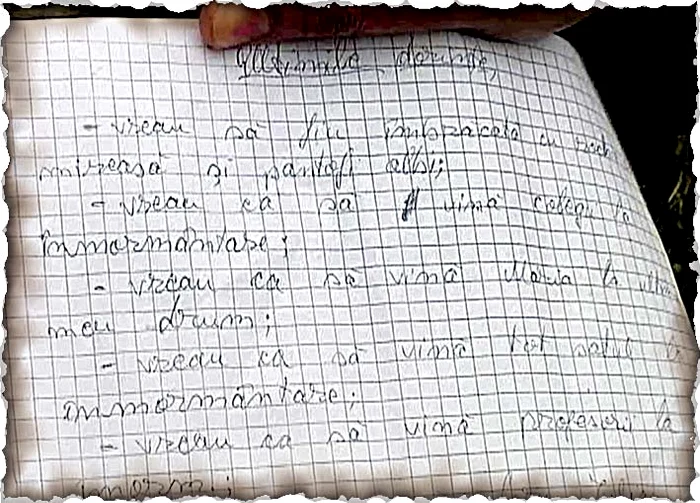 Ultimile dorințe,
- vreau să fiu îmbrăcată cu
mireasă și pantofi albi;
- vreau ca să vină colegii la
înmormântare;
- vreau ca să vină Maria la
meu drum;
- vreau ca să vină tot satul la
înmormântare;
- vreau ca să vină profesorii la